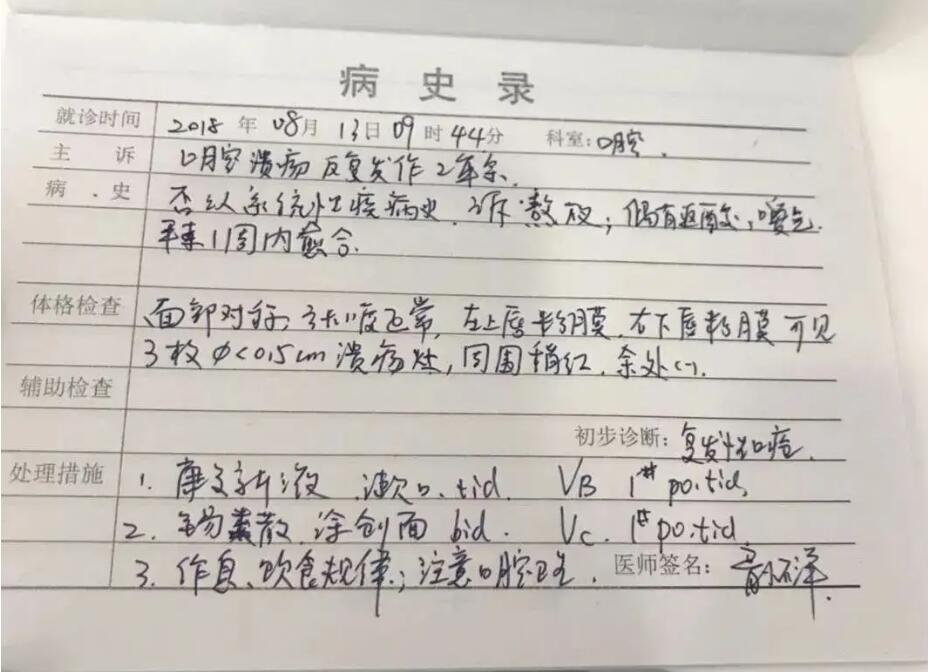 病史录
就诊时间 2018年 08月 13日 09时 44分 科室:口腔.
主诉 口腔溃疡反复发作2年余.
病史 否认系统性疾病史. 诉熬夜;偶有返酸,嗳气.
1周内愈合.
体格检查 面部对称,张口度正常,左上唇粘膜,右下唇粘膜可见
3枚φ<0.5cm溃疡灶,周围稍红,余处(-).
辅助检查
初步诊断:复发性口疮.
处理措施 1. 康复新液 漱口.tid. VB 1# po.tid,
2. 锡类散 涂创面 bid. Vc. 1# po.tid.
3. 作息、饮食规律;注意口腔卫生. 医师签名: